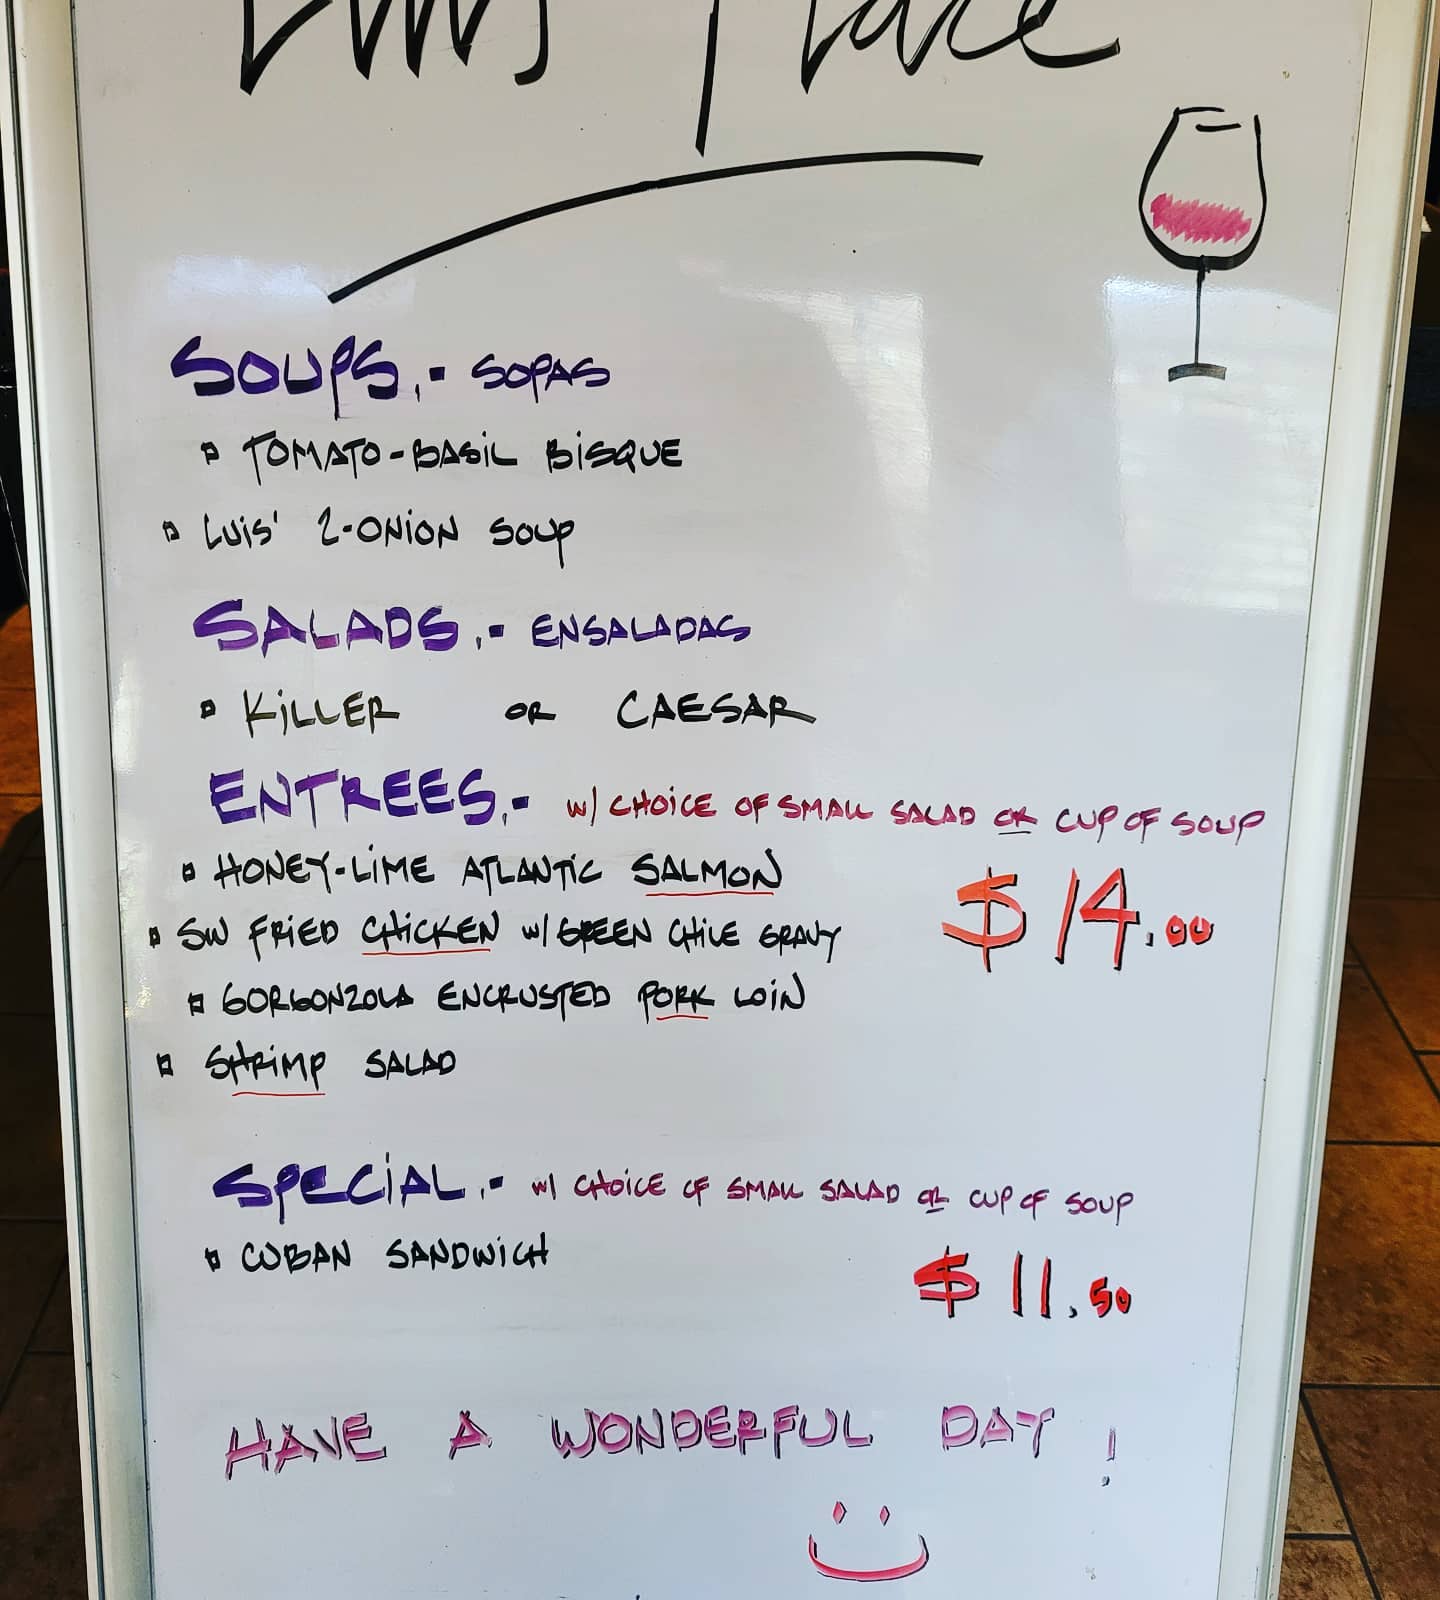 Luis' Place
SOUPS.- SOPAS
TOMATO-BASIL BISQUE
LUIS' 2-ONION SOUP
SALADS.- ENSALADAS
KILLER OR CAESAR
ENTREES.- W/ CHOICE OF SMALL SALAD OR CUP OF SOUP
HONEY-LIME ATLANTIC SALMON
$14.00
SW FRIED CHICKEN W/ GREEN CHILE GRAVY
GORGONZOLA ENCRUSTED PORK LOIN
SHRIMP SALAD
SPECIAL.- W/ CHOICE OF SMALL SALAD OR CUP OF SOUP
CUBAN SANDWICH
$11.50
HAVE A WONDERFUL DAY!